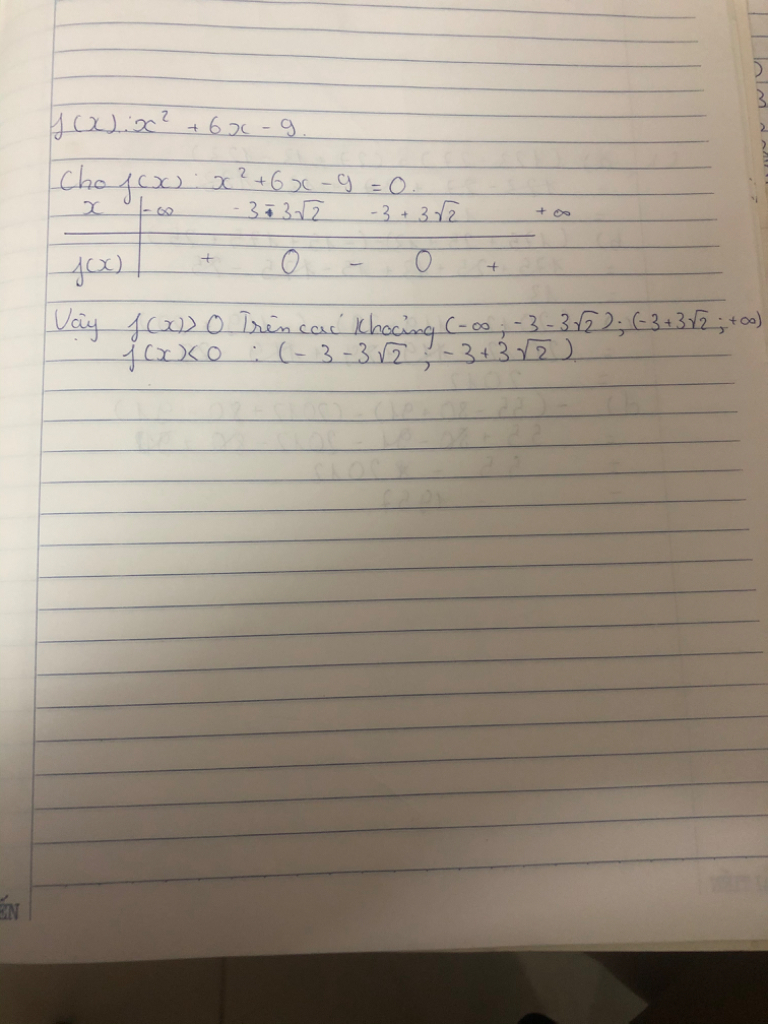 f(x): x² + 6x - 9.
Cho f(x): x² + 6x - 9 = 0.
x -∞ -3 - 3√2 -3 + 3√2 +∞
f(x) + 0 - 0 +
Vậy f(x) > 0 Trên các khoảng (-∞; -3 - 3√2); (-3 + 3√2; +∞)
f(x) < 0 : (-3 - 3√2; -3 + 3√2)
ẾN